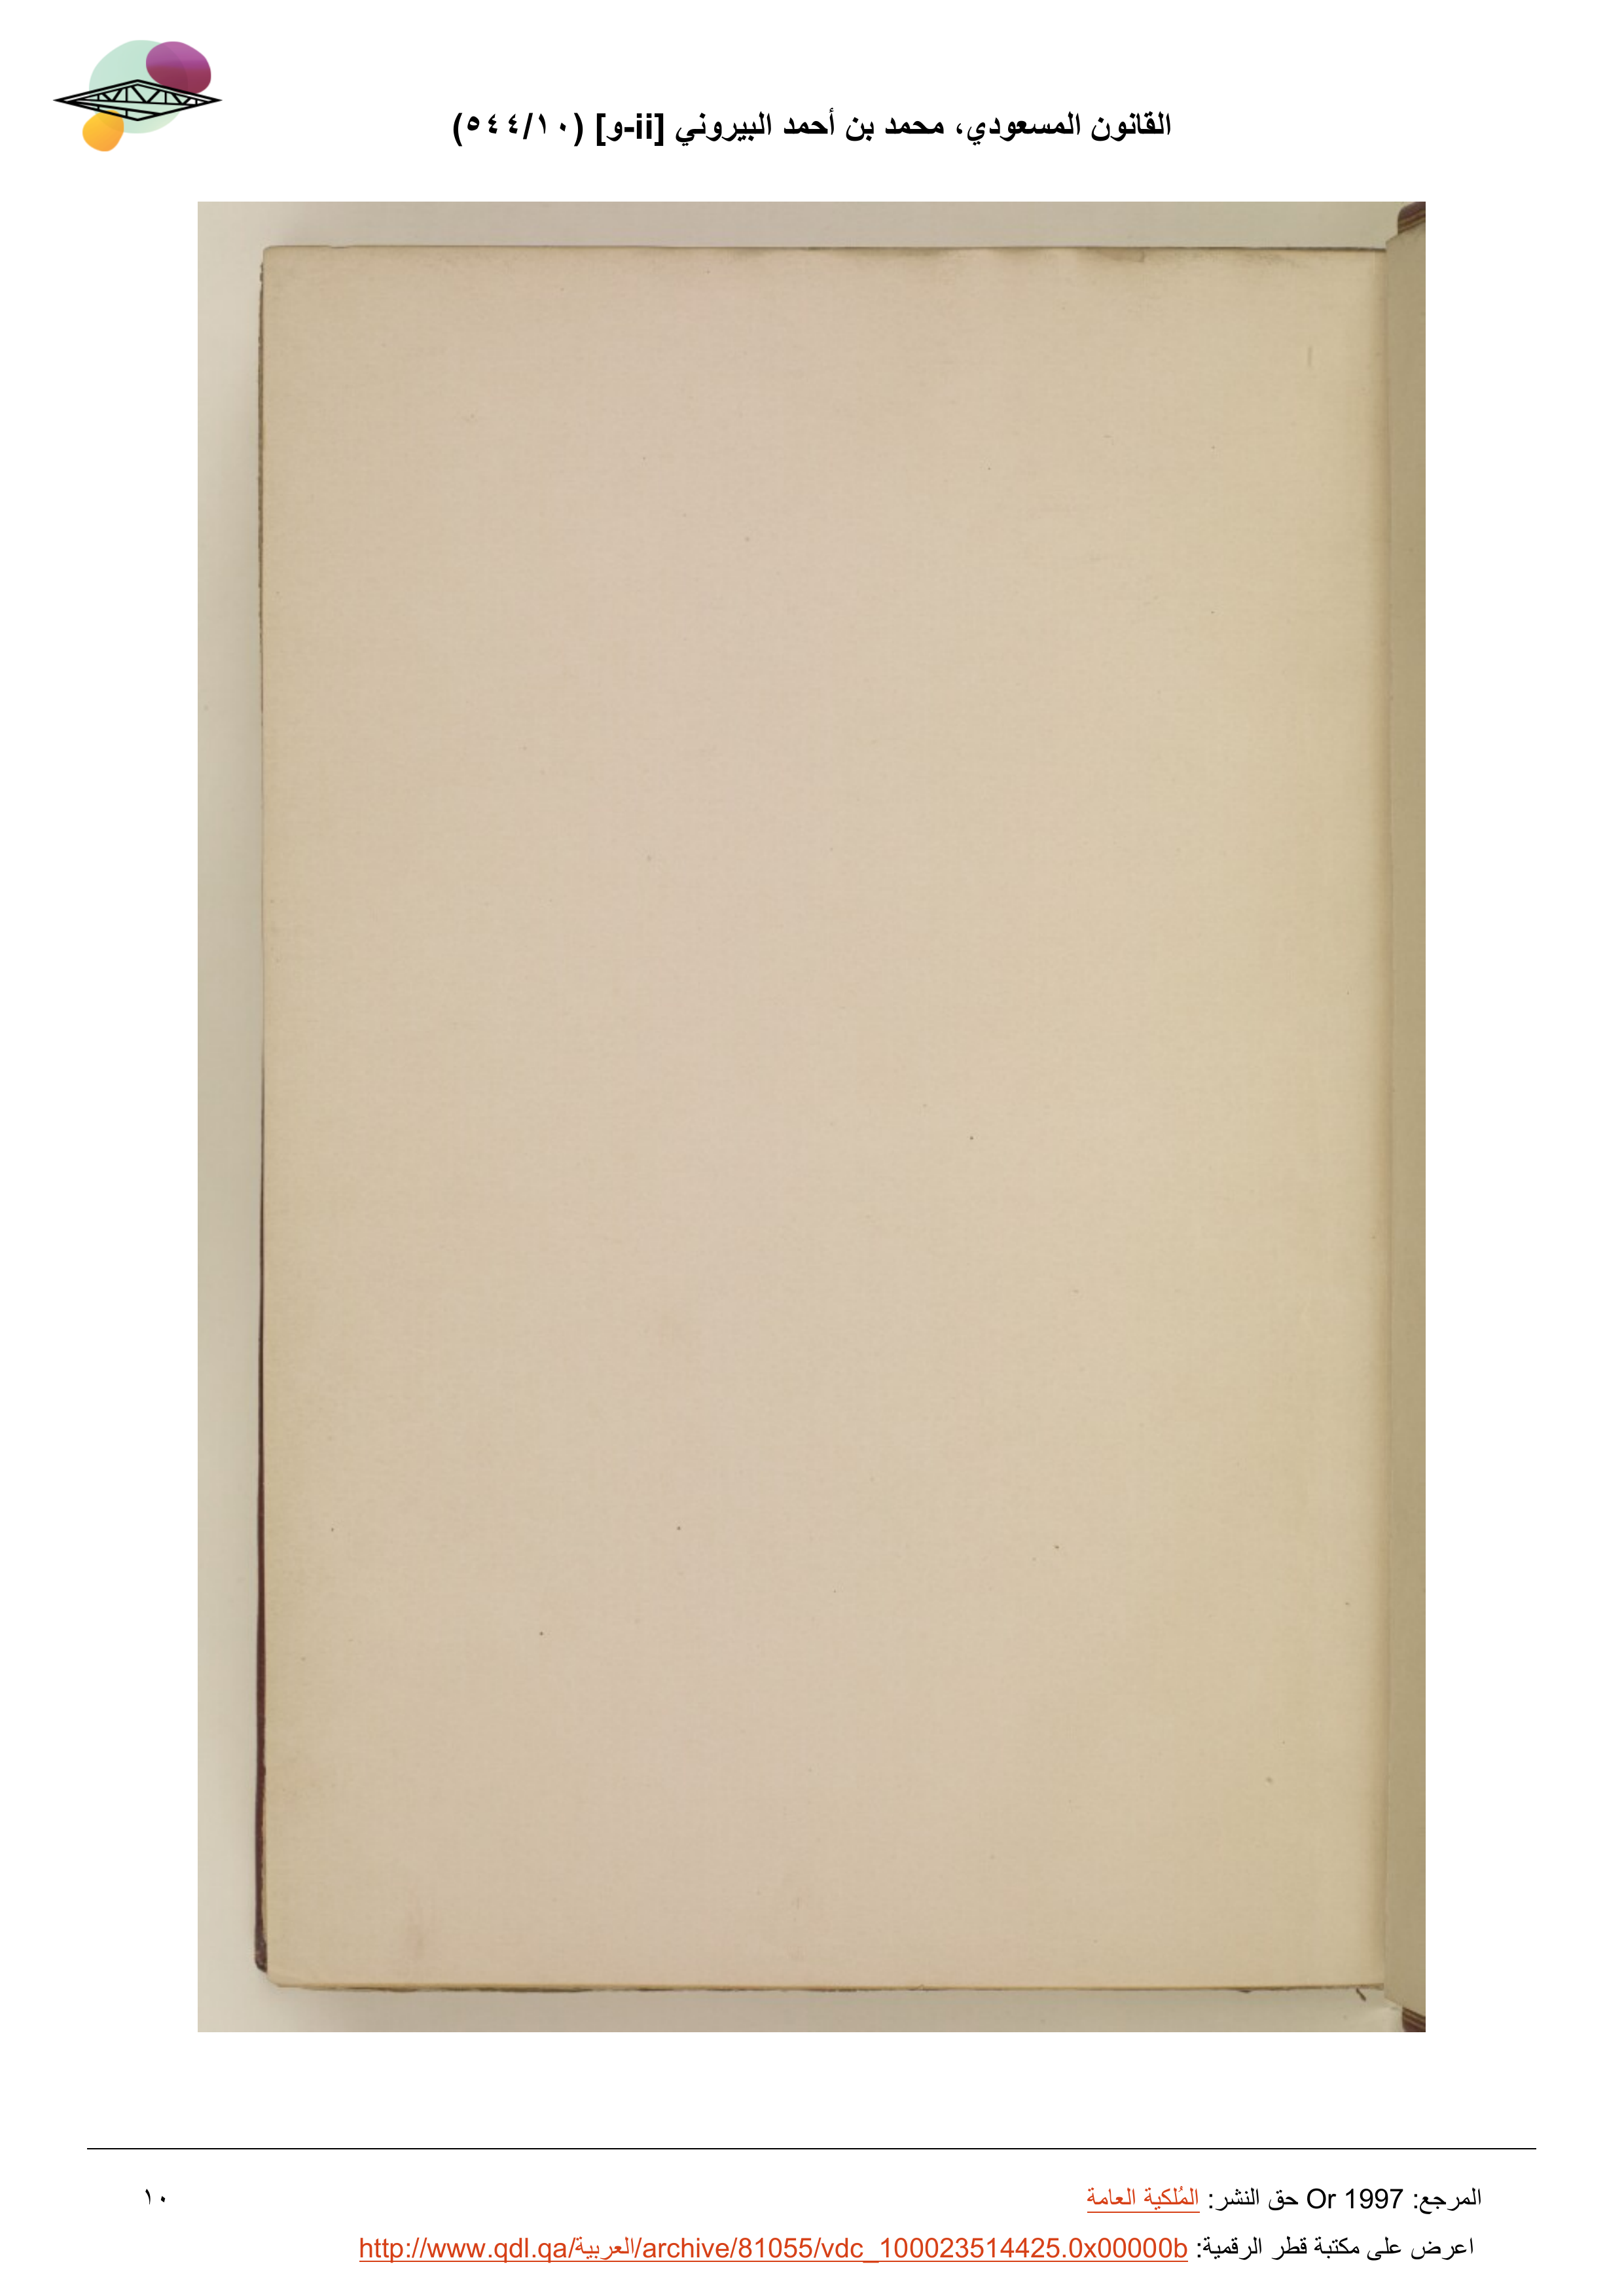 القانون المسعودي، محمد بن أحمد البيروني [ii-و] (٥٤٤/١٠)
المرجع: Or 1997 حق النشر: المُلكية العامة
١٠
اعرض على مكتبة قطر الرقمية: http://www.qdl.qa/العربية/archive/81055/vdc_100023514425.0x00000b